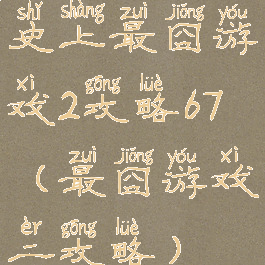 shǐ shàng zuì jiǒng yóu
史上最囧游
xì gōng lüè
戏2攻略67
zuì jiǒng yóu xì
（最囧游戏
èr gōng lüè
二攻略）